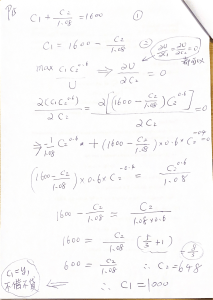 C₁ + C₂/1.08 = 1600 ①
C₁ = 1600 - C₂/1.08 ②
∂U/∂C₁ = ∂U/∂C₂ = 0
max C₁C₂^0.6 ⇒ ∂U/∂C₂ = 0
U
∂(C₁C₂^0.6)/∂C₂ = ∂[(1600 - C₂/1.08) C₂^0.6]/∂C₂ = 0
⇒ -1/1.08 C₂^0.6 + (1600 - C₂/1.08) × 0.6 × C₂^-0.4 = 0
(1600 - C₂/1.08) × 0.6 × C₂^-0.4 = C₂^0.6/1.08
1600 - C₂/1.08 = C₂/1.08×0.6
1600 = C₂/1.08 (5/3 + 1)
600 = C₂/1.08 ∴ C₂ = 648
8/3
∴ C₁ = 1000
C₁ = y₁
不借不貸